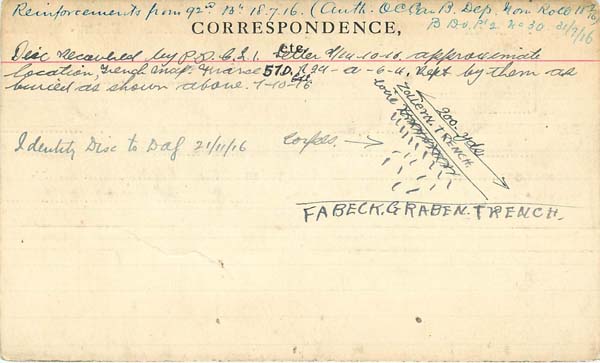 Reinforcements from 92nd Bn 18.7.16. (Auth. O.C. Can B. Dep. Nom Roll 18/7/16
B Do. Pt 2 No 30. 31/7/16
CORRESPONDENCE,
Disc recovered by P.P.C.L.I. Letter 14-10-16. approximate
location, Trench Map. France 57D. R.24-a-6-4, Kept by them as
buried as shown above. 7-10-16
Identity Disc to DAG 21/11/16
Corpses. →
wire
Zollern. TRENCH
200. yds
FABECK. GRABEN. TRENCH.